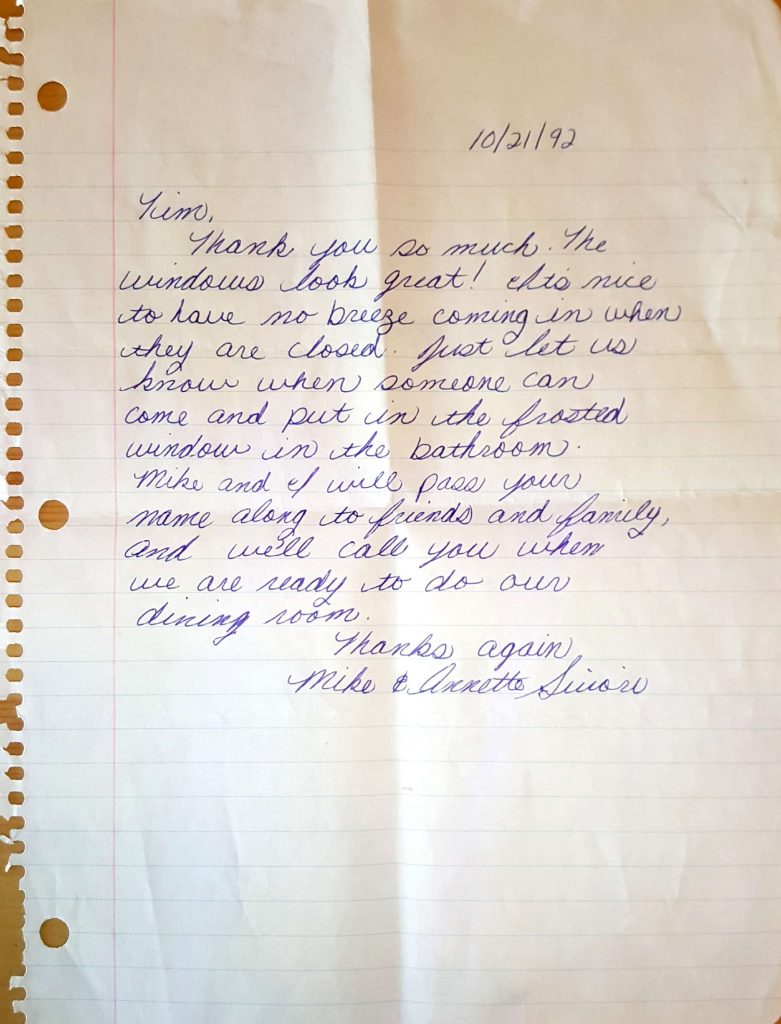 10/21/92
Tim,
Thank you so much. The
windows look great! It's nice
to have no breeze coming in when
they are closed. Just let us
know when someone can
come and put in the frosted
window in the bathroom.
Mike and I will pass your
name along to friends and family,
and we'll call you when
we are ready to do our
dining room.
Thanks again
Mike & Annette